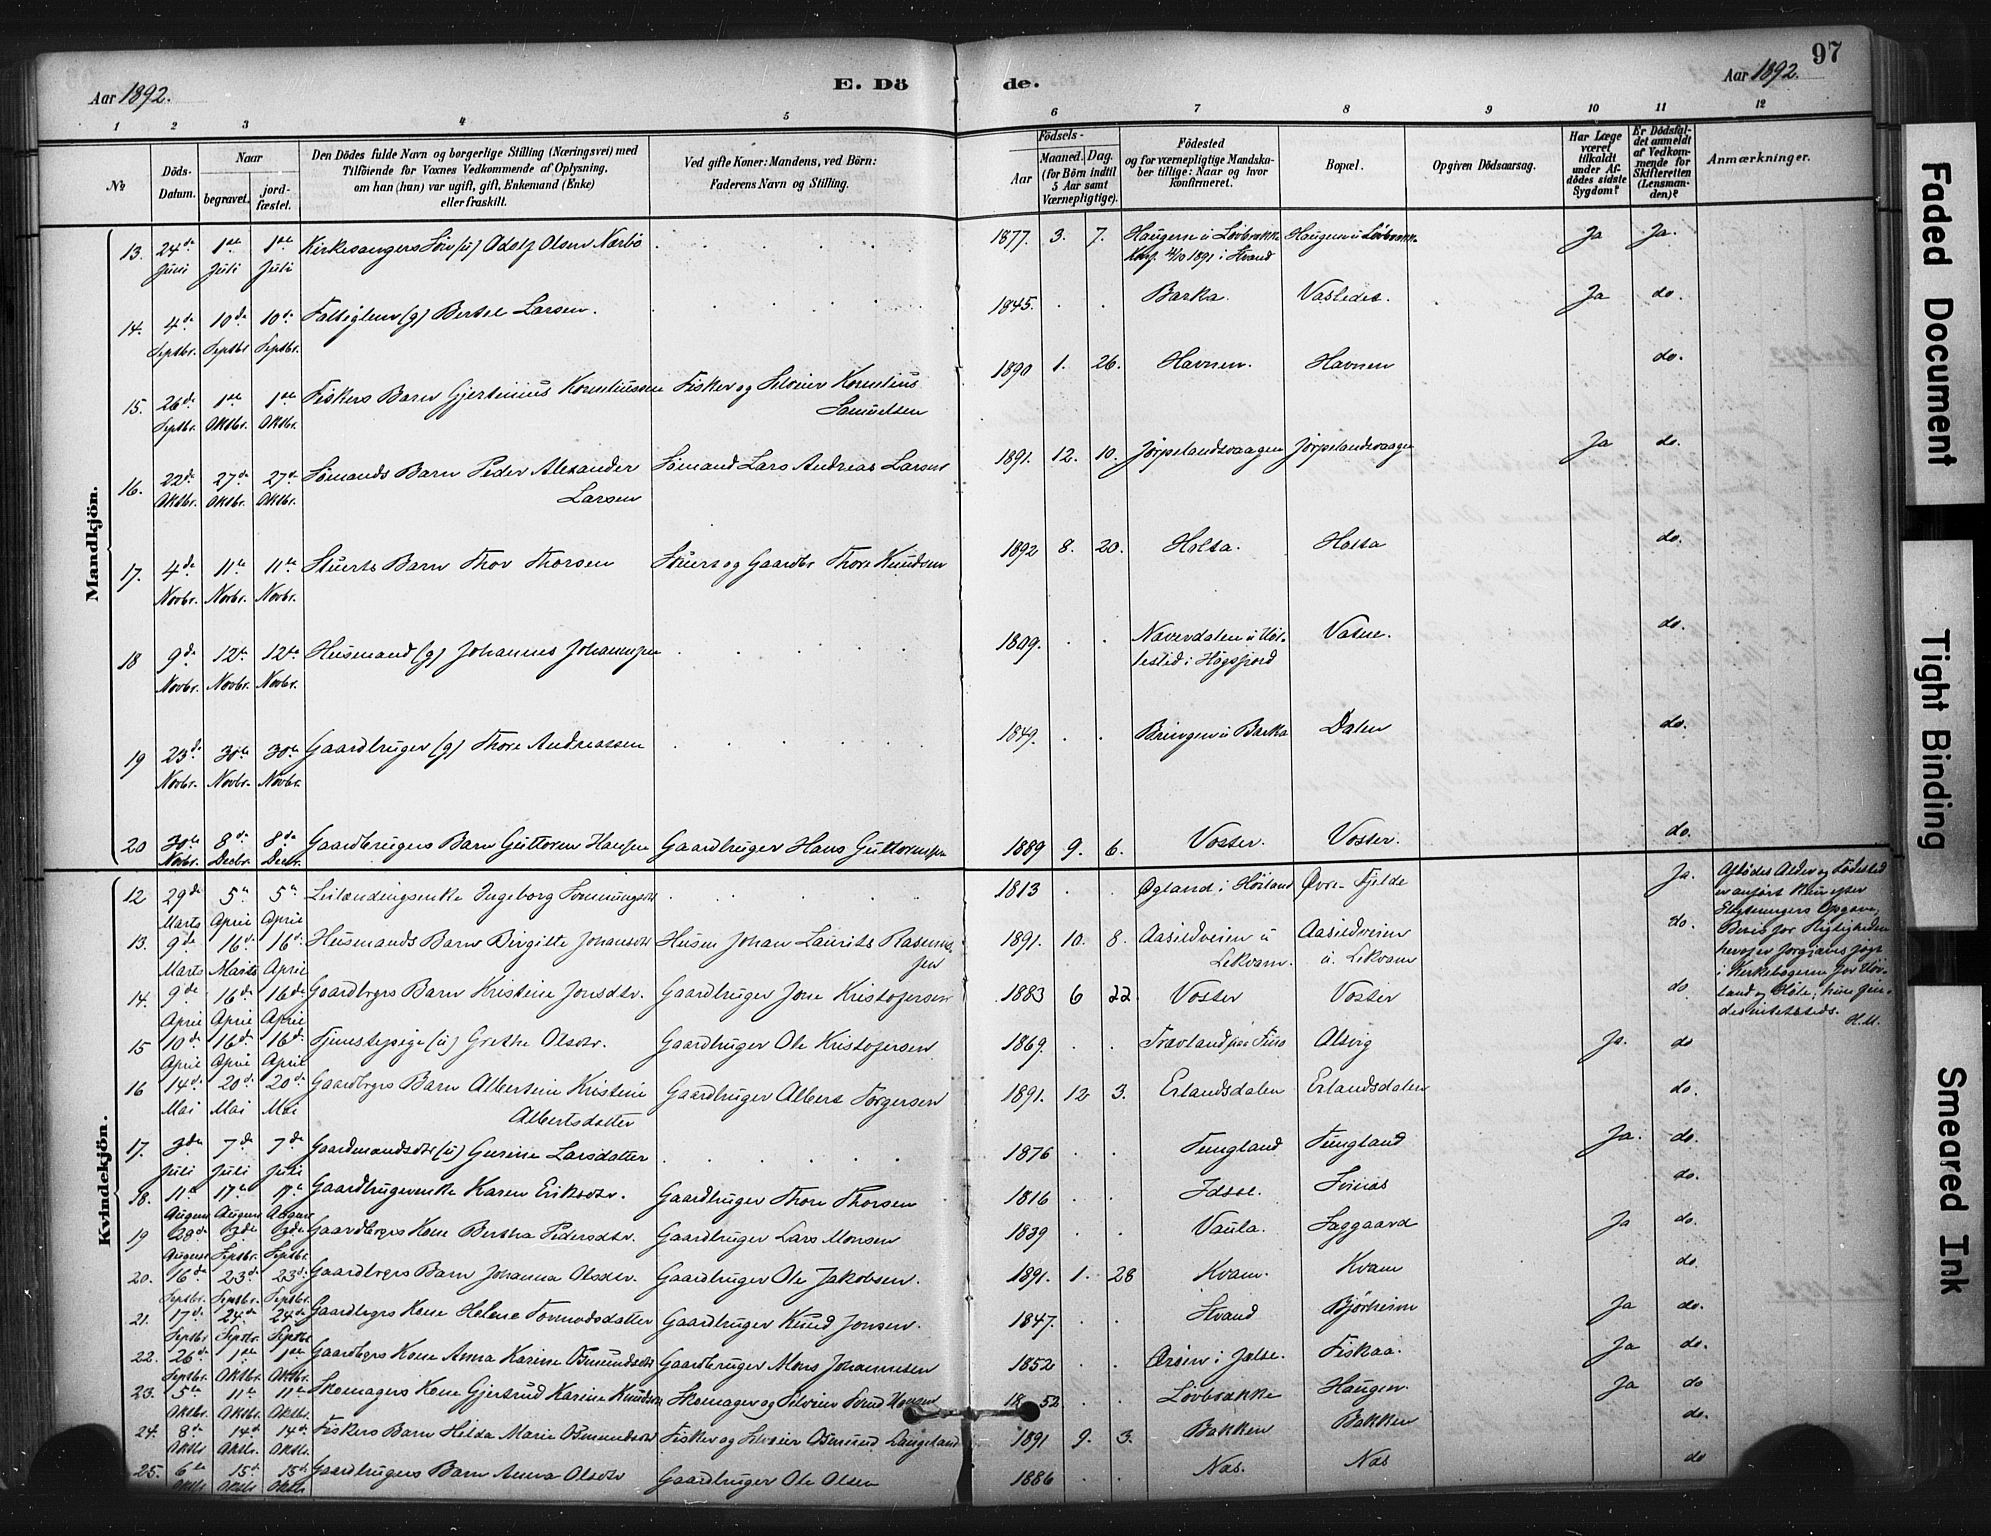 97
Aar 1892.
E. Dö de.
Aar 1892.
1 2 3 4 5 6 7 8 9 10 11 12
No
Döds-Datum.
Naar
begravet.
jord-fæstet.
Den Dödes fulde Navn og borgerlige Stilling (Næringsvei) med
Tilföiende for Voxnes Vedkommende af Oplysning,
om han (hun) var ugift, gift, Enkemand (Enke)
eller fraskilt.
Ved gifte Koner: Mandens, ved Börn:
Faderens Navn og Stilling.
Födsels-
Aar
Maaned. Dag.
(for Börn indtil
5 Aar samt
Værnepligtige).
Födested
og for værnepligtige Mandska-
ber tillige: Naar og hvor
konfirmeret.
Bopæl.
Opgiven Dödsaarsag.
Har Læge
været
tilkaldt
under Af-
dödes sidste
Sygdom?
Er Dödsfal-
det anmeldt
af Vedkom-
mende for
Skifteretten
(Lensman-
den)?
Anmærkninger.
Mandkjön.
13. 24de 1ste 1ste Kirkesangers Søn (u) Adolf Olsen Nærbø 1877. 3. 7. Haugen u Løvbrække Haugen u Løvbrække Ja Ja.
Juni Juli Juli Konf. 4/10 1891 i Strand
14. 4de 10de 10de Fattiglem (g) Bertel Larsen. 1845. Barka. Vasledet. Ja do.
Septbr. Septbr. Septbr.
15. 26de 1ste 1ste Fiskers Barn Gjertinius Korneliussen Fisker og Selveier Kornelius 1890 1. 26. Havnen. Havnen do.
Septbr. Oktbr. Oktbr. Samuelsen
16. 22de 27de 27de Sømands Barn Peder Alexander Sømand Lars Andreas Larsen 1891. 12. 10. Jørpelandsvaagen Jørpelandsvaagen Ja do.
Oktbr. Oktbr. Oktbr. Larsen
17. 4de 11te 11te Stuerts Barn Thor Thorsen Stuert og Gaardbr Thore Knudsen 1892 8. 20. Holta. Holta do.
Novbr. Novbr. Novbr.
18 9de 12te 12te Husmand (g) Johannes Johannessen 1809. Vatne. do.
Novbr. Novbr. Novbr. i Høgsfjord
19 23de 30te 30te Gaardbruger (g) Thore Andreassen 1849. Bringen u Barka Dalen do.
Novbr. Novbr. Novbr.
20 30te 8de 8de Gaardbrugers Barn Guttorm Hansen Gaardbruger Hans Guttormsen 1889 9. 6. Voster. Voster. do.
Novbr. Decbr. Decbr.
Kvindekjön.
12 29de 5te 5te Leilændingsenke Ingeborg 1813 Øgland i Høiland Øvre-Fjelde Ja.
Marts April April
13. 9de 16de 16de Husmands Barn Birgitte Johansdtr Husm Johan Laurits Rasmus- 1891. 10. 8. Aasildveien u Aasildveien do.
Marts Marts April sen Lekvam. u. Lekvam
14. 9de 16de 16de Gaardbrgrs Barn Kristine Jonsdtr. Gaardbruger Jone Kristofersen 1883 6 22. Voster Voster do
April April April
15 10de 16de 16de Tjenestepige (u) Grethe Olsdtr. Gaardbruger Ole Kristofersen 1869. Alsvig Ja. do
April April April
16 14de 20de 20de Gaardbrgrs Barn Albertine Kristine Gaardbruger Albert Torgersen 1891. 12 3. Erlandsdalen Erlandsdalen do.
Mai Mai Mai Albertsdatter
17. 3die 7de 7de Gaardmandsdtr (u) Gurine Larsdatter 1876 Tungland Tungland Ja. do.
Juli Juli Juli
18. 11te 17de 17de Gaardbrugerenke Karen Eriksdtr. Gaardbruger Thore Thorsen 1816 Idsse. Svines do.
August August August
19 29de 3die 3die Gaardbrgrs Kone Bertha Pedersdtr. Gaardbruger Lars Monsen 1839 Vaula. Saggaard Ja do.
August Septbr. Septbr.
20. 16de 23de 23de Gaardbrgrs Barn Johanna Olsdtr. Gaardbruger Ole Jakobsen. 1891. 1. 28 Kvam. Kvam do.
Septbr. Septbr. Septbr.
21. 17de 24de 24de Gaardbrgrs Kone Helene Tormodsdatter Gaardbruger Knud Jonsen. 1847. Strand Bjørheim Ja do.
Septbr Septbr. Septbr
22. 26de 1ste 1ste Gaardbgrs Kone Anna Karine Osmundsdtr Gaardbruger Mons Johannesen 1852 i Jelse. Fiskaa. Ja do.
Septbr. Oktbr. Oktbr.
23. 5te 11te 11te Skomagers Kone Gjertrud Karine Knudsdtr Skomager og Selveier 1852 Løvbrække Haugen. Ja do
Oktbr. Oktbr. Oktbr.
24. 8de 14de 14de Fiskers Barn Hilda Marie Osmundsdtr Fisker og Selveier Osmund Langeland 1891 9. 3. Bakken Bakken do.
Oktbr Oktbr. Oktbr.
25. 6te 15de 15de Gaardbrugers Barn Anna Olsdtr Gaardbruger Ole Olsen 1886 Nas. Nas do
Oktbr Oktbr. Oktbr.
Afdødes Alder og Fødested
er anført kun efter
Opgave;
Bevis for Rigtigheden
i Kirkebøgerne for Høi-
land og Høle;
H.M.
Faded Document
Tight Binding
Smeared Ink